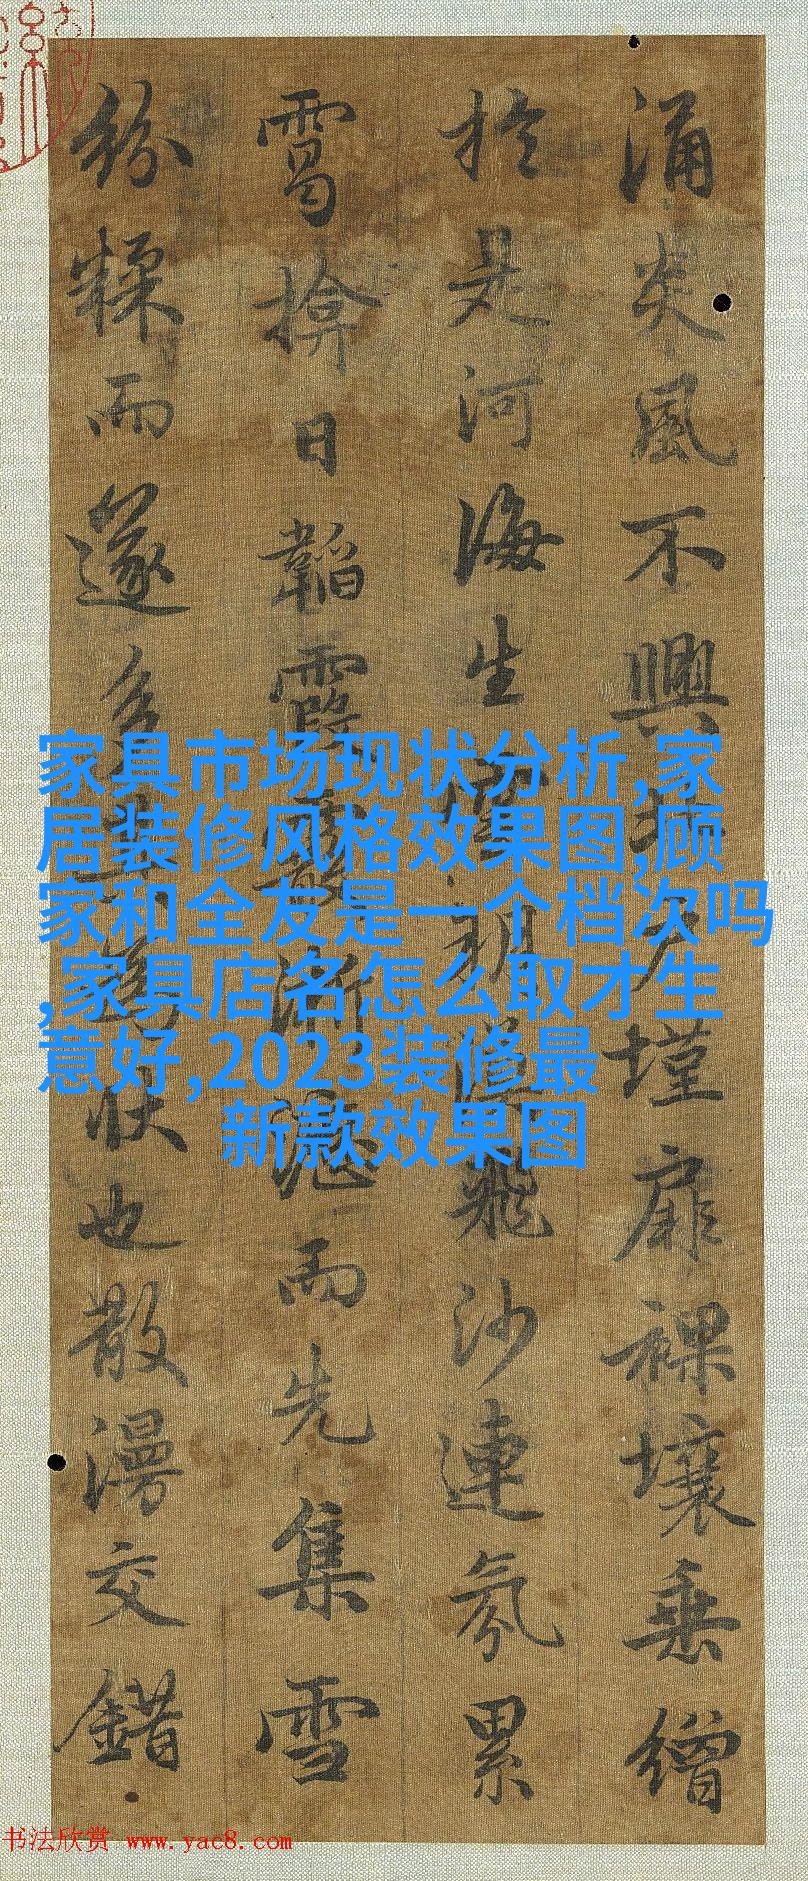 涌炎風不興墐扉裸壤垂繒
於是河海生朔飛沙連氛累
靄揜日韜霞霰淅瀝而先集雪
紛糅而遂多其為狀也散漫交錯
家具市场现状分析,家
居装修风格效果图,顾
家和全友是一个档次吗
,家具店名怎么取才生
意好,2023装修最
新款效果图
书法欣赏 www.yac8.com